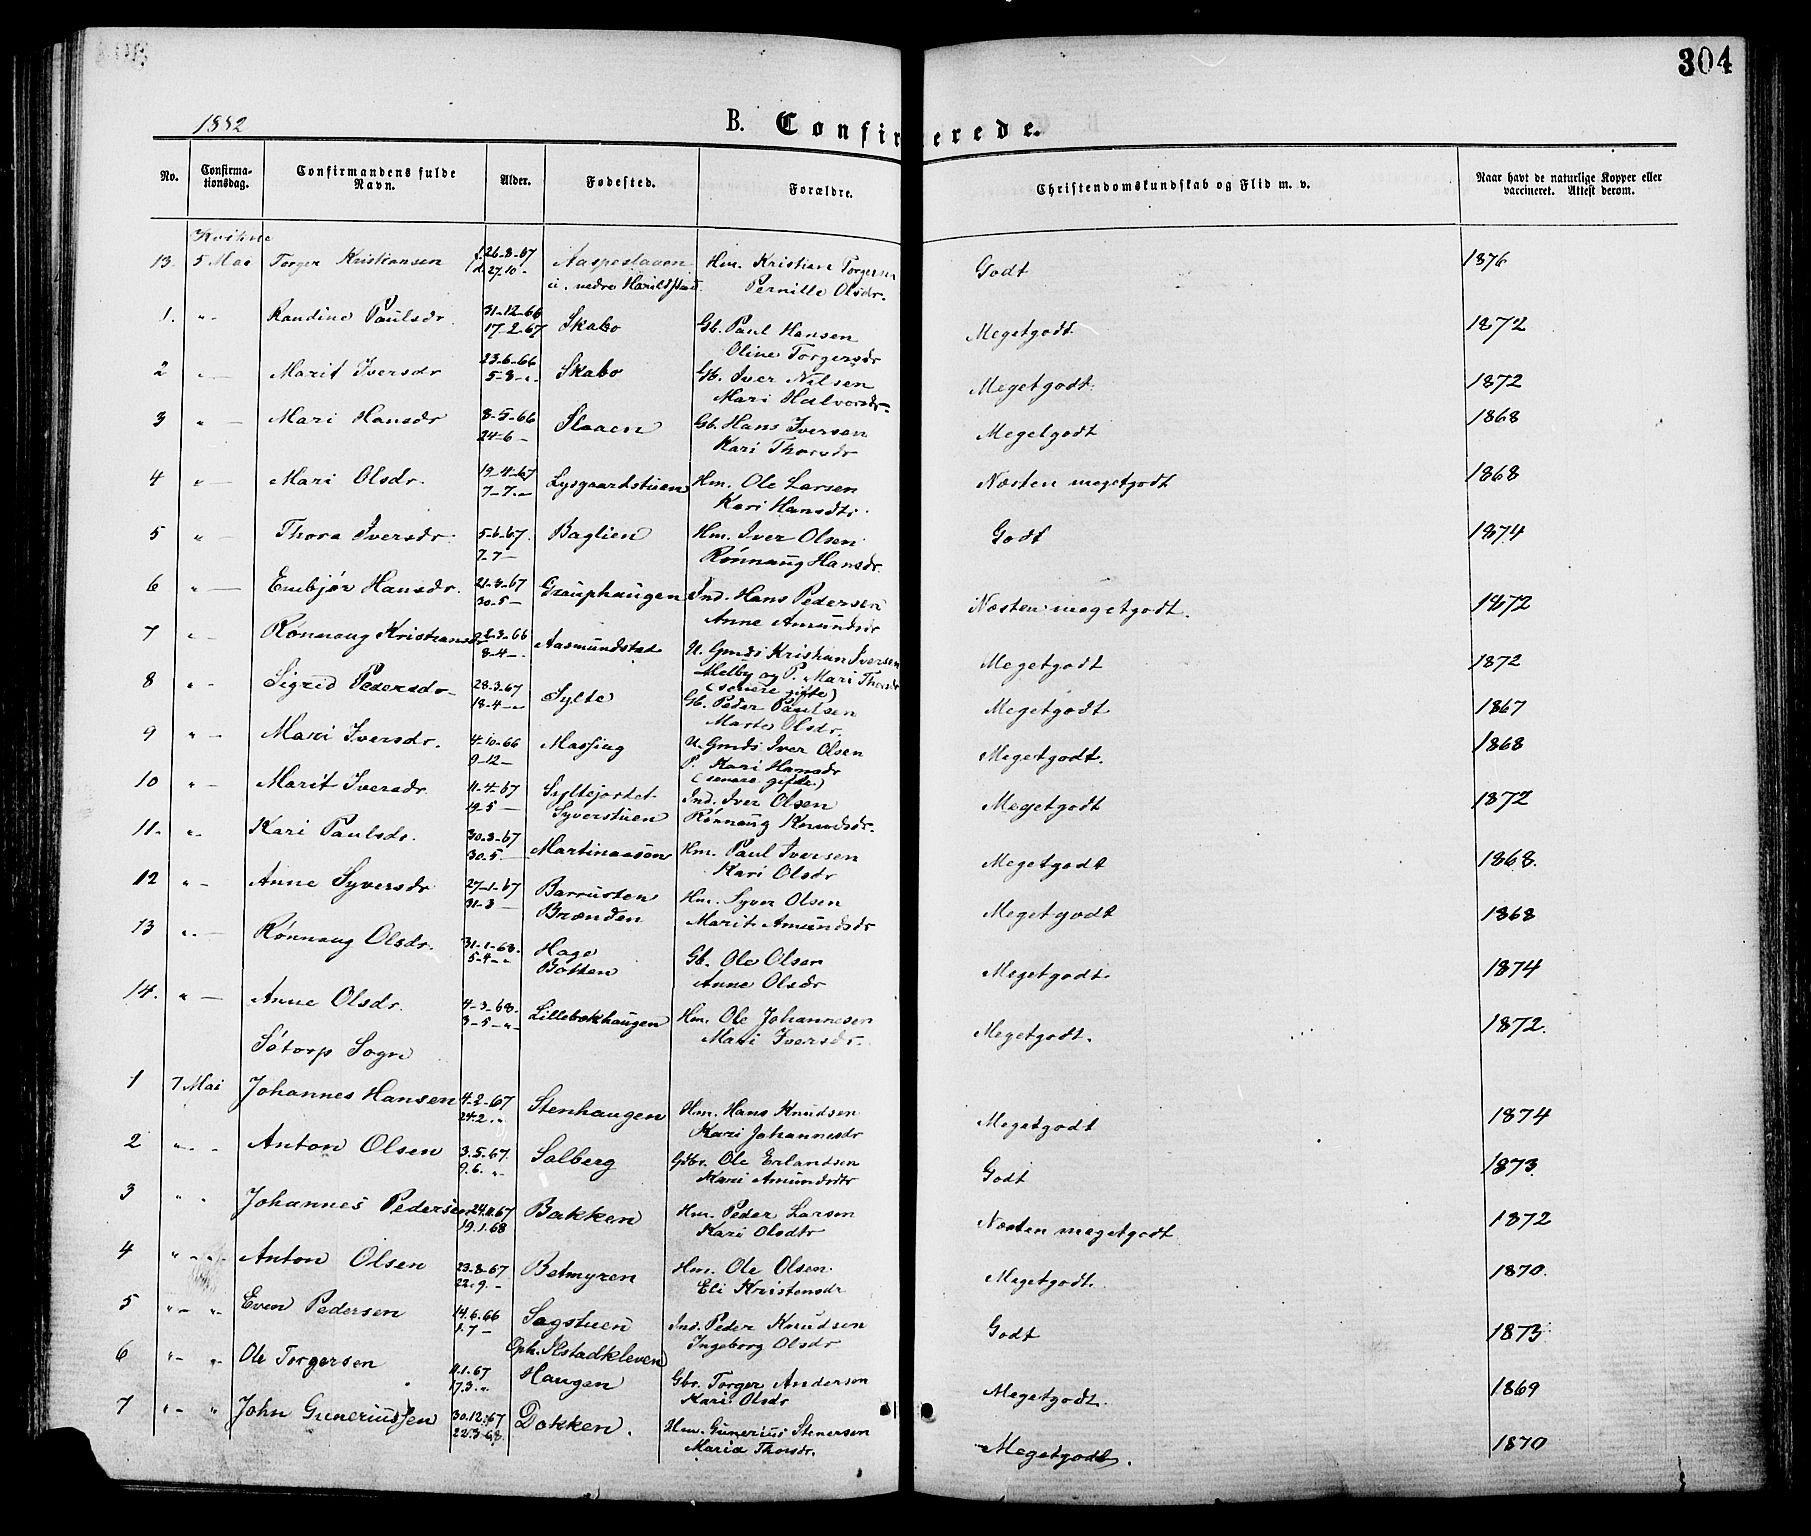 304
1882
B. Confirmerede.
No. Confirma-tionsdag. Confirmandens fulde Navn. Alder. Fødested. Forældre. Christendomskundskab og Flid m. v. Naar havt de naturlige Kopper eller vaccineret. Attest derom.
Kvikne
13. 5 Mai Torger Kristiansen f. 26-8-67 Aaspeslaaen Hm. Kristian Torgersen Godt 1876
d. 27.10 - u. nedre Harildstad Pernille Olsdr.
1. " - Randine Paulsdr. 31-12-66 Skabo Gb. Paul Hansen Megetgodt 1872
17-2-67 Oline Torgersdr
2 " - Marit Iversdr 23-6-66 Skabo Gb. Iver Nilsen Megetgodt. 1872
5-8-" Mari Halvorsdr
3 " - Mari Hansdr 8-5-66 Slaaen Gb. Hans Iversen Megetgodt 1868
24-6- Kari Thorsdr
4 " - Mari Olsdr. 19-4-67 Lysgaardstuen Hm. Ole Larsen Næsten megetgodt 1868
7-7-" Kari Hansdtr.
5 " - Thora Iversdr. 5-6-67. Baglien Hm. Iver Olsen Godt 1874
7-7- Rønnaug Hansdr.
6 " - Embjør Hansdr. 21-3-67 Grauphaugen Ind. Hans Pedersen Næsten megetgodt. 1872
30-5- Anne Amundsdr
7 " - Rønnaug Kristiansdr 22-3-66 Aasmundstad U. Gmds Kristian Iversen Megetgodt 1872
8-4-. Melby og P. Mari Thorsdr
(senere gifte)
8 " - Sigrid Pedersdr 28-3-67 Sylte Gb. Peder Paulsen Megetgodt 1867
18-4-" Marte Olsdr.
9 " - Mari Iversdr. 4-10-66 Massing U. Gmds Iver Olsen Megetgodt. 1868
9-12- P. Kari Hansdr
(senere gifte.)
10 " - Marit Iversdr 11-4-67 Syltejordet Ind. Iver Olsen Megetgodt 1872
19-5- Syverstuen Rønnaug Knudsdr.
11. " - Kari Paulsdr. 30-3-67 Martinaasen Hm. Paul Iversen Megetgodt 1868.
30.5 - Kari Olsdr
12 " - Anne Syversdr 27-1-67 Barrusten Hm. Syver Olsen Megetgodt 1868
31-3 - Brænden Marit Amundsdr
13 " - Rønnaug Olsdr. 31-1-68. Hage Gb. Ole Olsen Megetgodt. 1874
5-4-" Botten Anne Olsdr
14. " - Anne Olsdr. 4-3-68. Lillebækhaugen Hm. Ole Johannesen Megetgodt. 1872.
3-5-" Mari Iversdr.
Sötorp Sogn
1 7 Mai Johannes Hansen 4-2-67 Stenhaugen Hm. Hans Knudsen Megetgodt 1874
24.2." Kari Johannesdr
2 " - Anton Olsen 3.5.67. Solberg Gbr. Ole Erlandsen Godt 1873
9.6." Kari Amundsdtr
3 " " Johannes Pedersen 24.11.67 Bakken Hm. Peder Larsen Næsten megetgodt 1872
19.1.68 Kari Olsdtr
4 " - " Anton Olsen 23-8-67 Betmyren Hm. Ole Olsen. Megetgodt. 1870.
22.9.- Eli Kristensdr
5 " - " Even Pedersen 14.6.66 Sagstuen Ind. Peder Knudsen Godt 1873
1.7- Oph. Ilstadkleven Ingeborg Olsdr
6 " - " Ole Torgersen 11.1.67 Haugen Gbr. Torger Andersen Megetgodt. 1869
17.3." Kari Olsdr
7 " - " John Guneriussen 30.12.67 Dokken. Hm. Gunerius Stenersen Megetgodt. 1870
22.3.68 Maria Thorsdr.